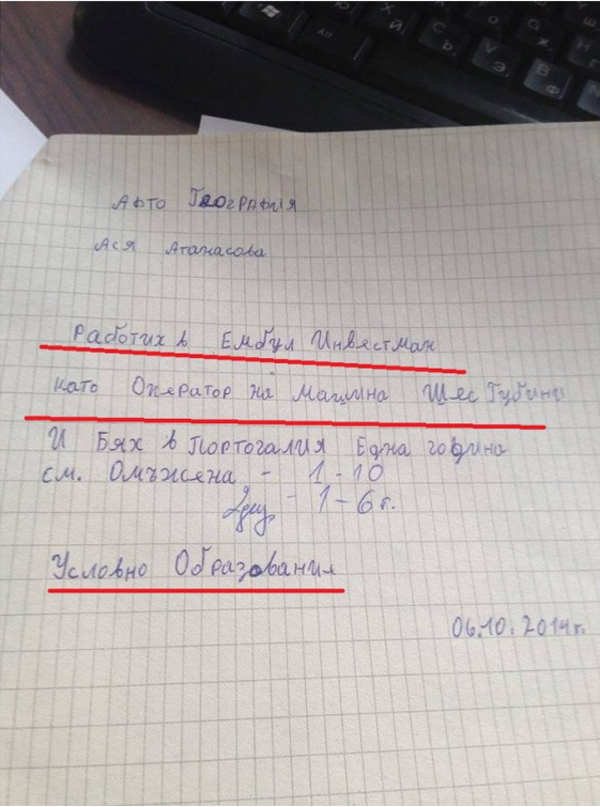 Афто География
Ася Атанасова
Работих в Ембул Инвястман
като Оператор на Машина Шес Губини
И Бях в Португалия Една година
см. Омъжена - 1-10
2дец - 1-6 г.
Условно Образования
06.10.2014г.